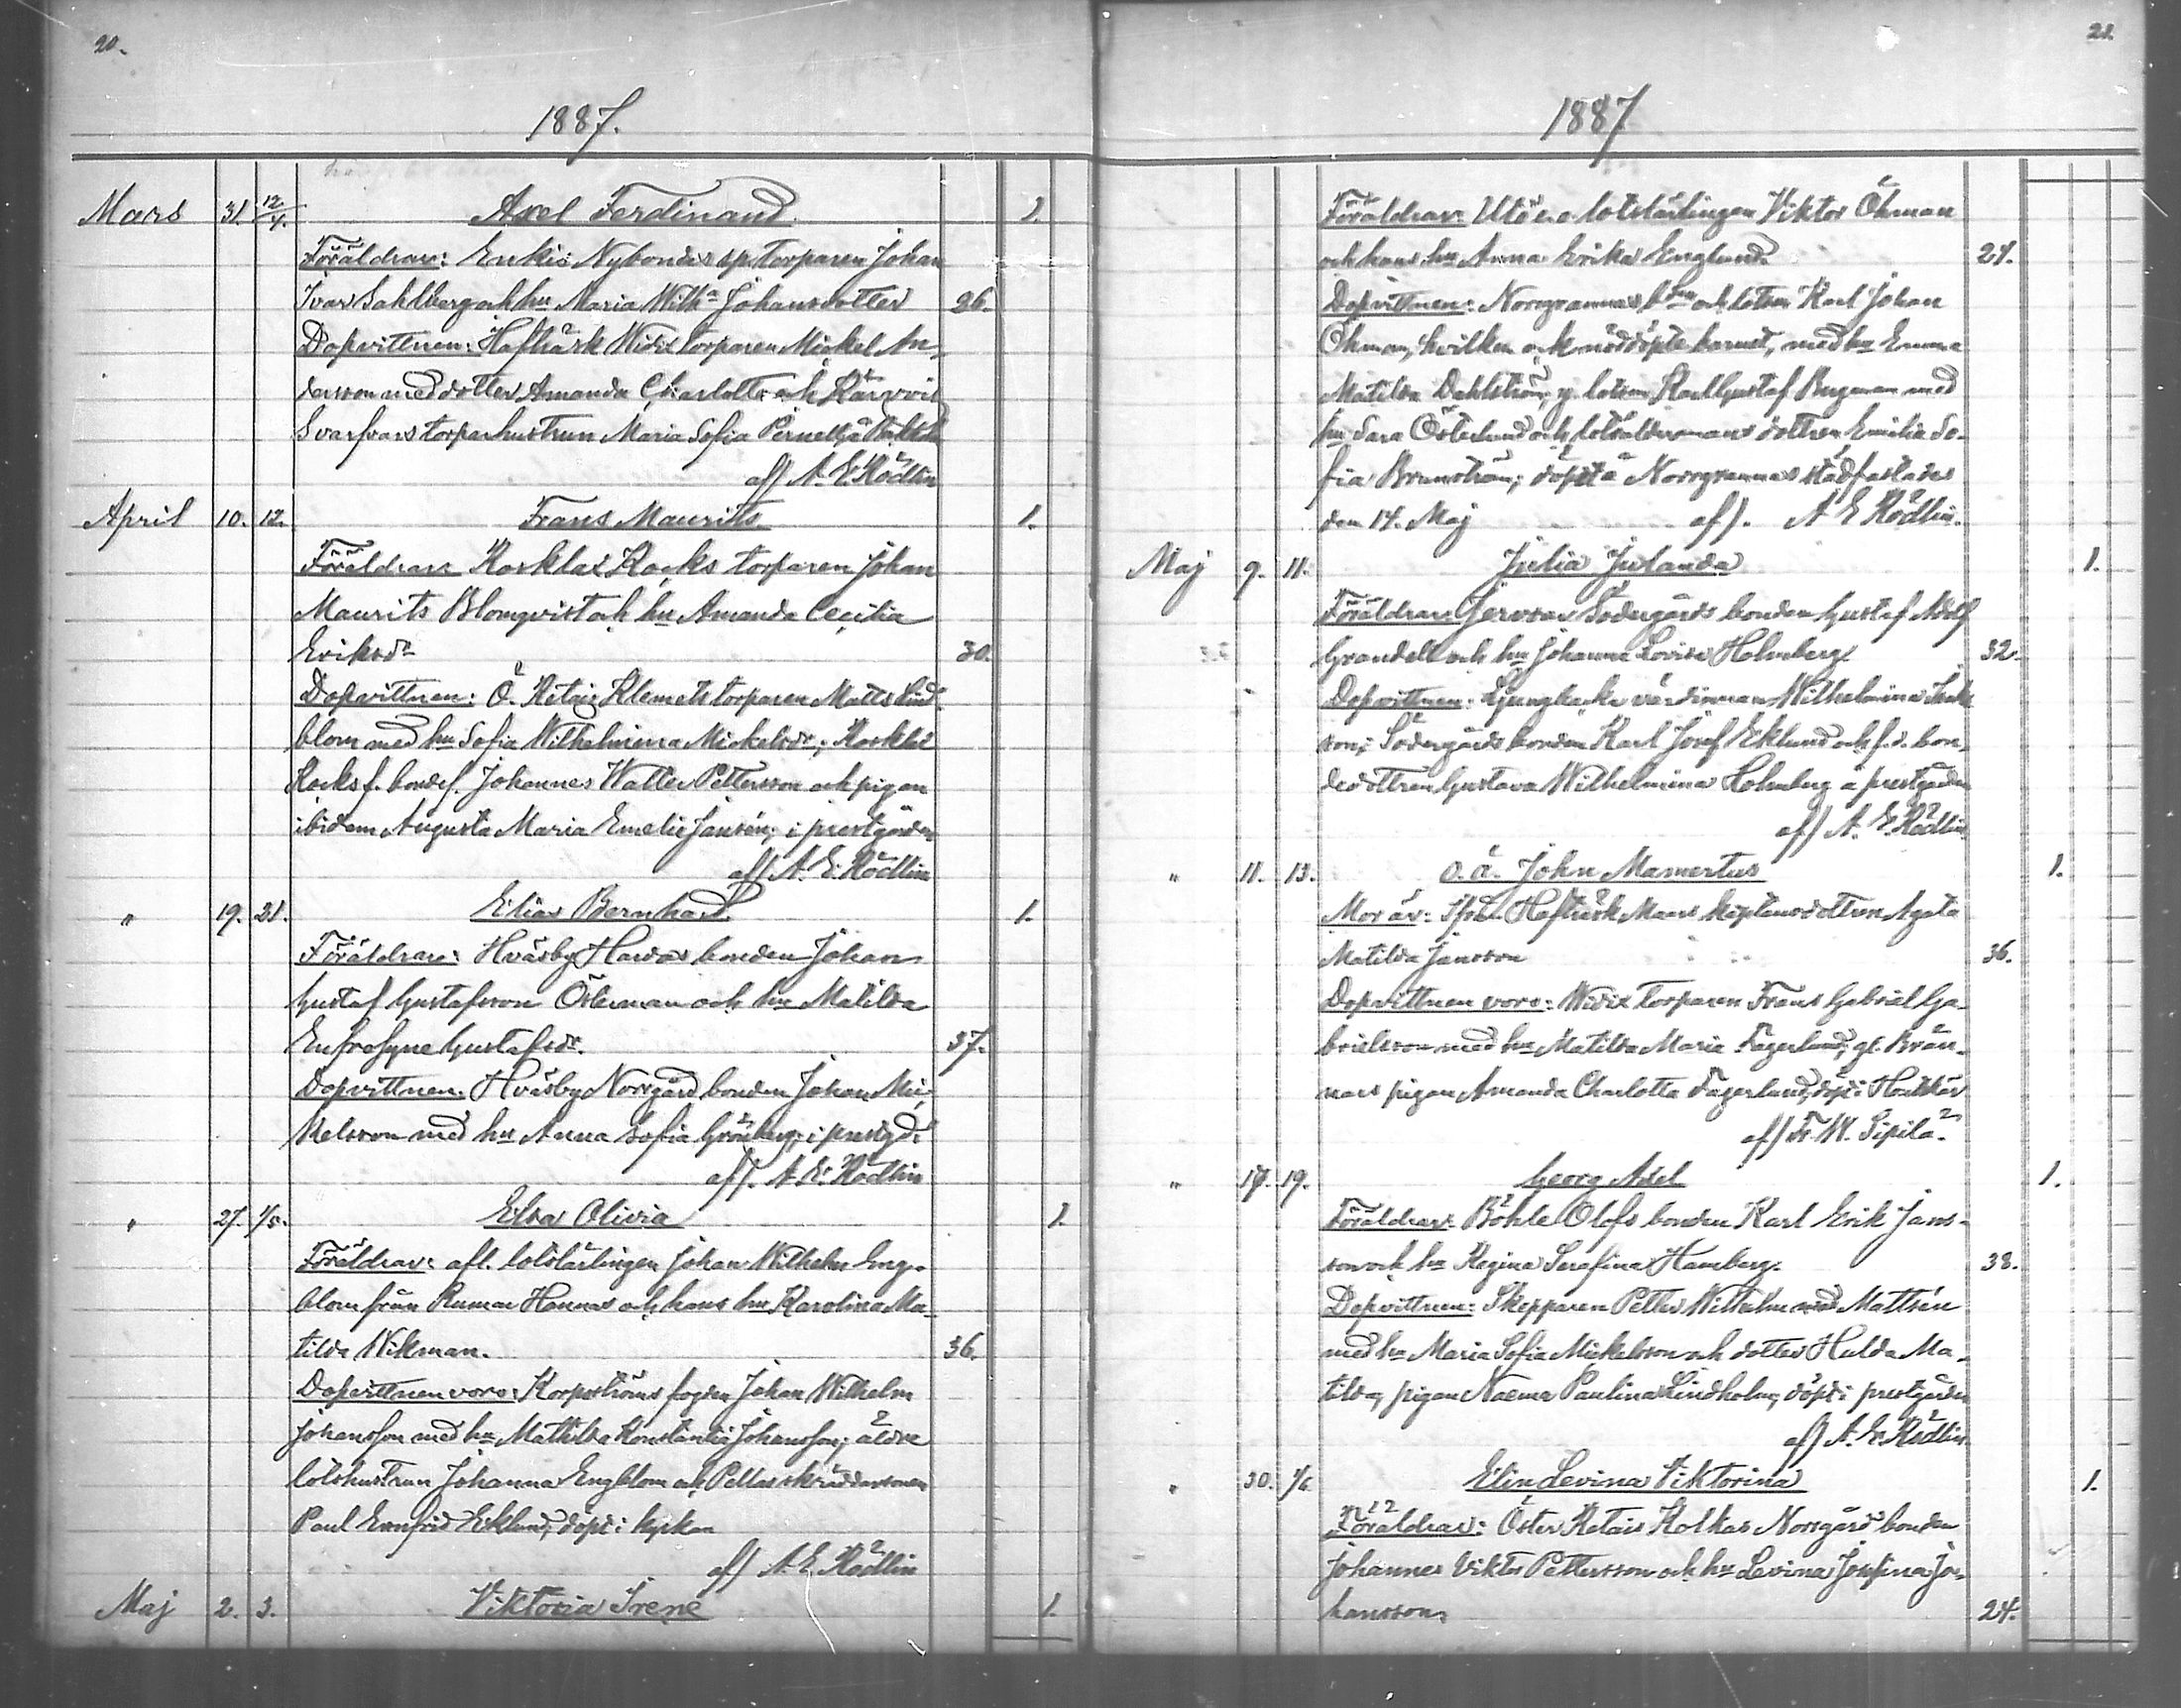 20.
1887.
Mars 31. 12/4. Axel Ferdinand. 1.
Föräldrar: Enkis Nybondas sp. torparen Johan
Ivar Sahlberg och hu Maria Wilh:a Johansdotter 26.
Dopvittnen: Hafträsk Widix torparen Mickel An-
dersson med dotter Amanda Charlotta och Kärrvik
Svarfvars torparhustrun Maria Sofia
af/ A. E. Rödlin
April 10. 12. Frans Maurits 1.
Föräldrar Korklax Kocks torparen Johan
Maurits Blomqvist och hu Amanda Cecilia
Eriksdr 30.
Dopvittnen: Ö. Retais Klemets torparen Matts Lind-
blom med hu Sofia Wilhelmina Mickelsdr; Korklax
Kocks f. bondef. Johannes Walter Pettersson och pigan
ibidem Augusta Maria Emelie Jansén; i prestgården
af/ A. E. Rödlin
" 19. 21. Elias Bernhard 1.
Föräldrar: Hväsby Hardas bonden Johan
Gustaf Gustafsson Österman och hu Matilda
Eufrosyne Gustafsdr. 37.
Dopvittnen. Hväsby Norrgård bonden Johan Mic-
kelsson med hu Anna Sofia Grönberg; i prestgd:
af/. A. E. Rödlin
" 27. 1/5. Elsa Olivia 1.
Föräldrar: afl. lotslärlingen Johan Wilhelm Eng-
blom från Rumar Hannas och hans hu Karolina Ma-
tilda Wikman. 36.
Dopvittnen voro: Korpoströms fogden Johan Wilhelm
Johansson med hu Mathilda Konstantia Johansson; äldre
lotshustrun Johanna Engblom och Pellas skräddaresonen
Paul Ernfrid Eklund, döpt i kyrkan
af/ A. E. Rödlin
Maj 2. 3. Viktoria Irene 1.
21.
1887
Föräldrar: Utö e.o. lotslärlingen Viktor Öhman
och hans hu Anna Erika Englund. 24.
Dopvittnen: Norrgrannas och lotsen Karl Johan
Öhman, hvilken ock nöddöpte barnet, med hu Emma
Matilda Dahlström, y. lotsen Karl Gustaf Bergman med
hu Sara Österlund och lotsåldermans dottren Emilia So-
fia Brunström; döpt å Norrgrannas stadfästades
den 14. Maj af/. A E Rödlin.
Maj 9. 11. Julia Julanda 1.
Föräldrar: Jervsor Södergårds bonden Gustaf Adolf
Grandell och hu Johanna Lovisa Holmberg. 32.
Dopvittnen: Ljungbacka värdinnan Wilhelmina
son; Södergårds bonden Karl Josef Eklund och f.d. bon-
dedottren Gustava Wilhelmina Holmberg å prestgården
af/ A. E. Rödlin.
" 11. 13. o.ä. John Mamertus 1.
Mor är: Hafträsk Maans kaptensdottren Agata
Matilda Jansson 36.
Dopvittnen voro: Widix torparen Frans Gabriel Ga-
brielsson med hu Matilda Maria Fagerlund; gl. Brän-
nars pigan Amanda Charlotta Fagerlund; döpt i Houtskär
af/ Fr. W. Sipilä.
" 17. 19. Georg Axel 1.
Föräldrar: Böhle Olofs bonden Karl Erik Jans-
son och hu Regina Serafina Hamberg. 38.
Dopvittnen: Skepparen Petter Wilhelm Mattsén
med hu Maria Sofia Mickelsson och dotter Hulda Ma-
tilda, pigan Naema Paulina Lindholm, döpt i prestgården
af/ A. E. Rödlin.
" 30. 1/6. Elin Levina Viktorina 1.
Föräldrar: Öster Retais Kolkas Norrgård bonden
Johannes Viktor Pettersson och hu Levina Josefina Jo-
hansson. 24.